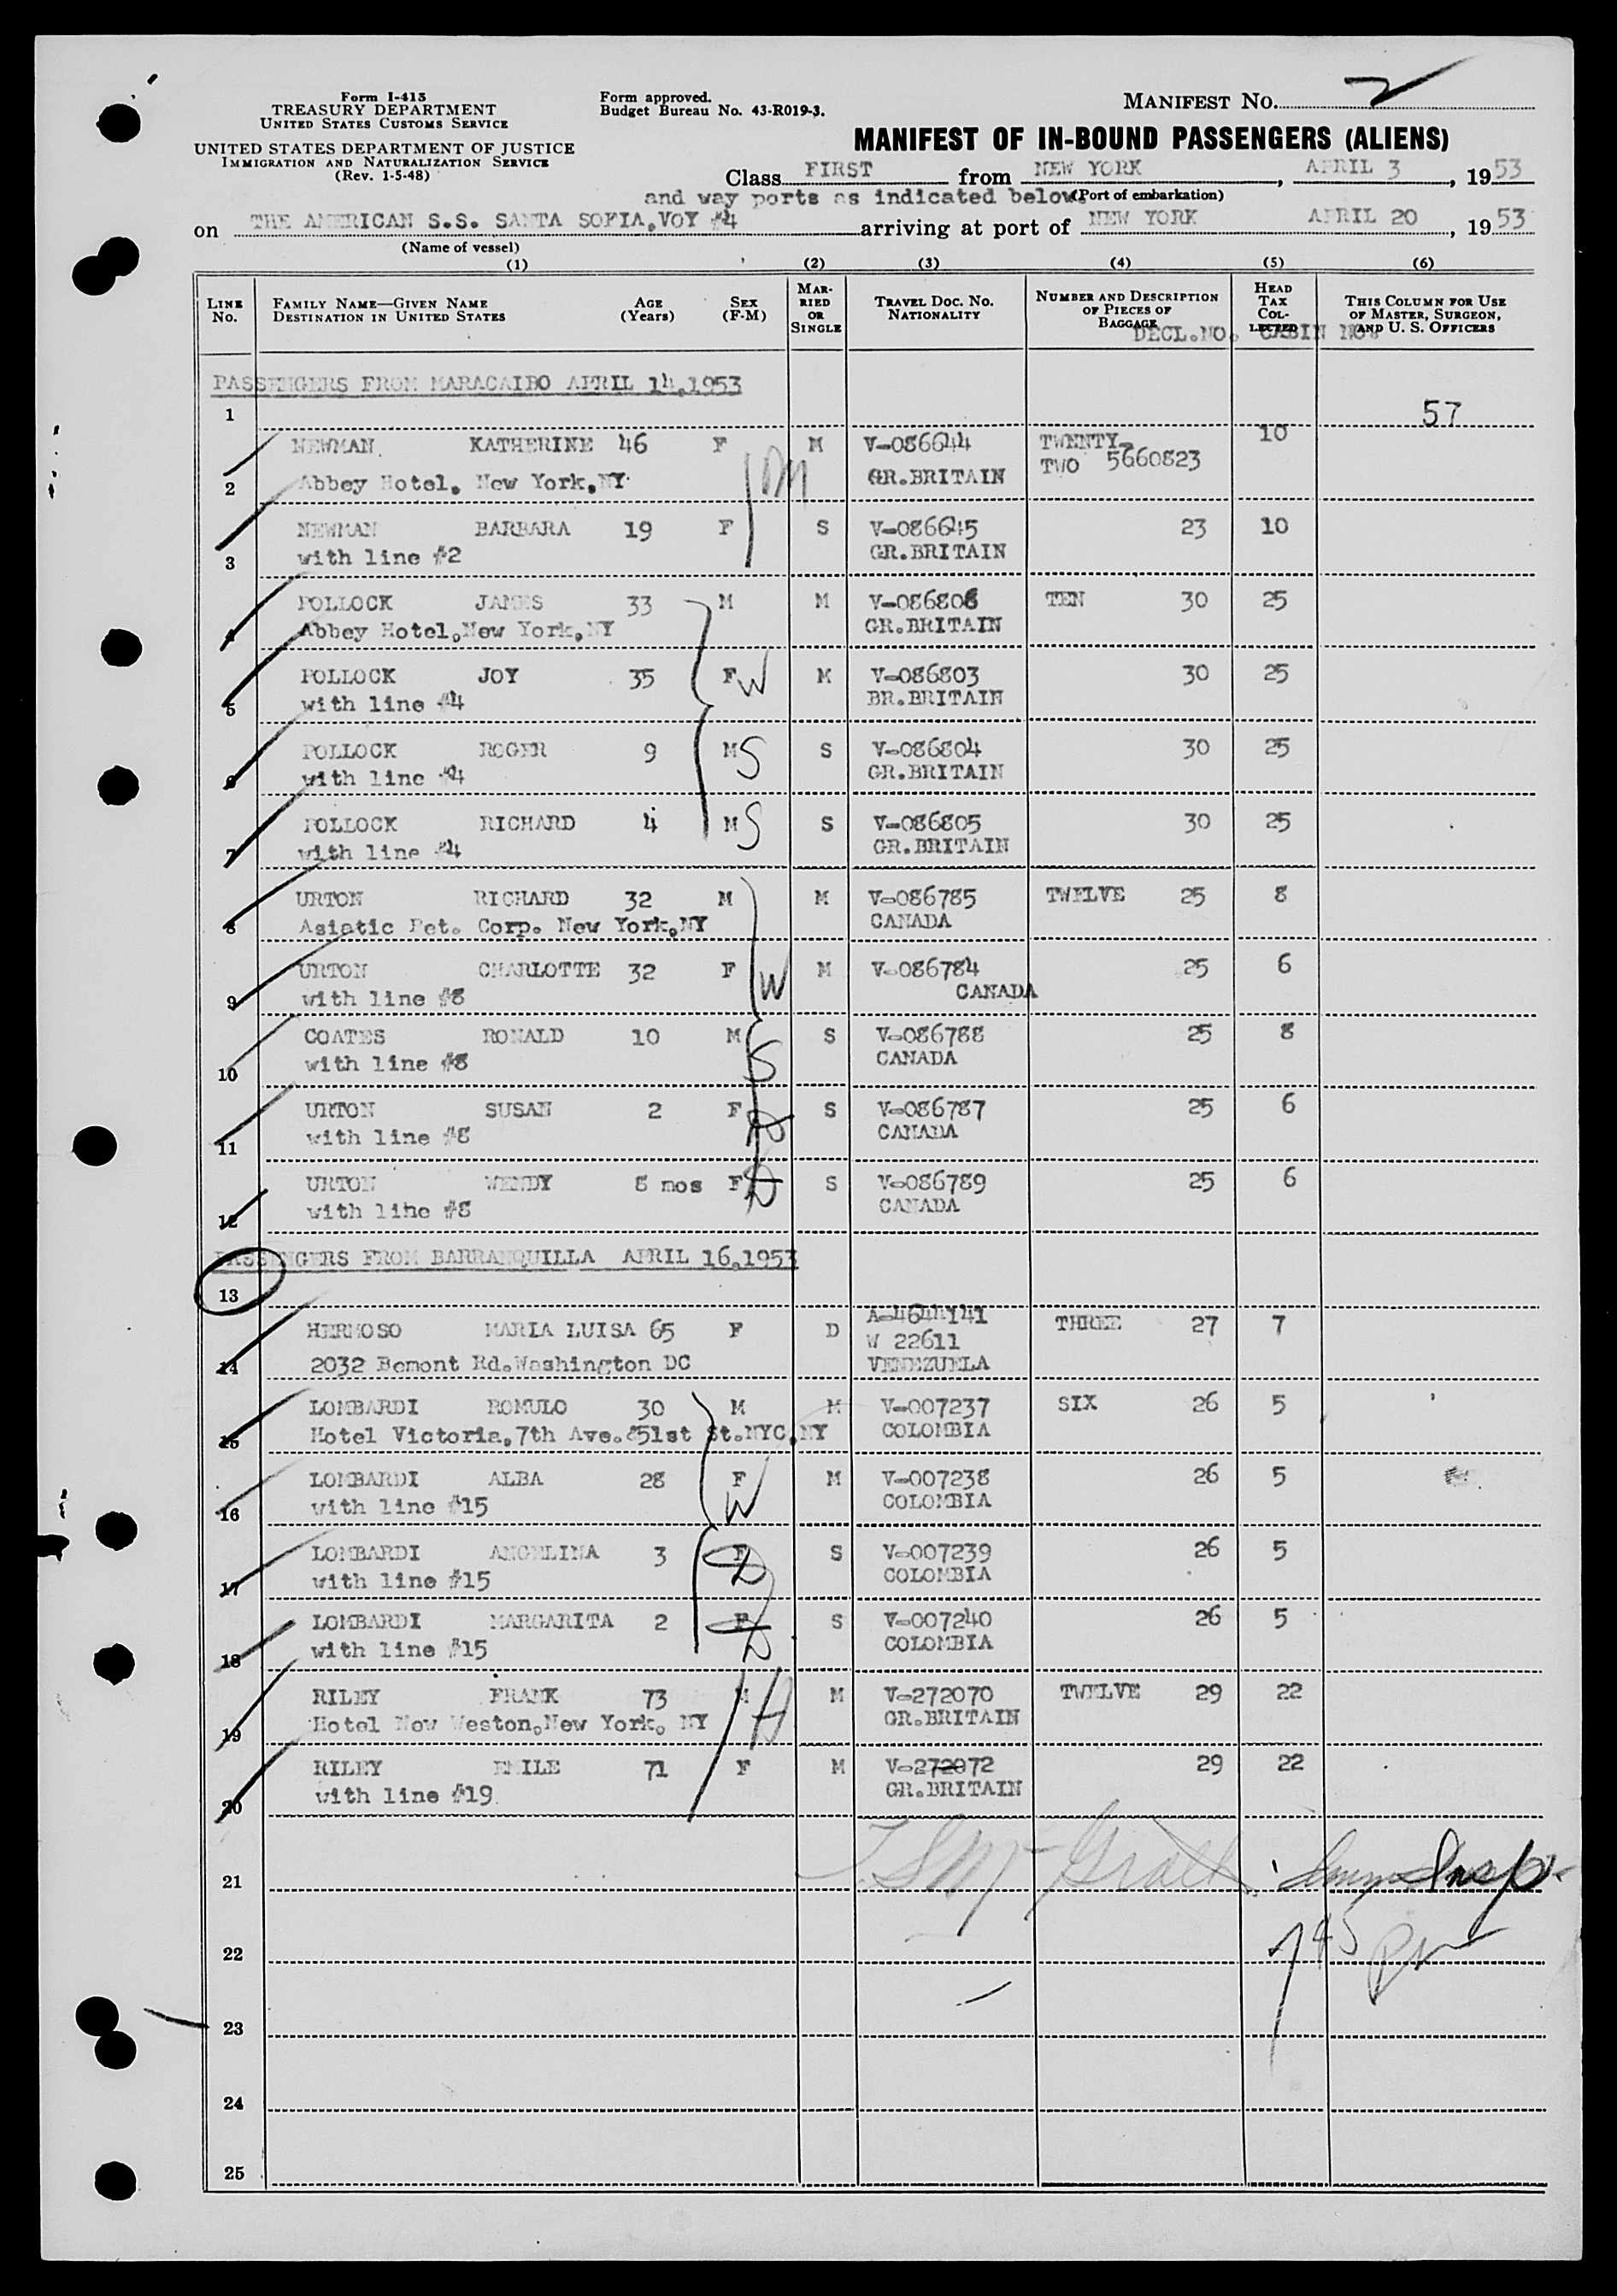 Form I-415
TREASURY DEPARTMENT
UNITED STATES CUSTOMS SERVICE
UNITED STATES DEPARTMENT OF JUSTICE
IMMIGRATION AND NATURALIZATION SERVICE
(Rev. 1-5-48)
Form approved.
Budget Bureau No. 43-R019-3.
MANIFEST NO. 2
MANIFEST OF IN-BOUND PASSENGERS (ALIENS)
Class FIRST from NEW YORK, APRIL 3, 1953
and way ports as indicated below. (Port of embarkation)
on THE AMERICAN S.S. SANTA SOFIA, VOY #4 arriving at port of NEW YORK APRIL 20, 1953
(Name of vessel)
(1) (2) (3) (4) (5) (6)
LINE NO. FAMILY NAME—GIVEN NAME DESTINATION IN UNITED STATES AGE (Years) SEX (F-M) MARRIED OR SINGLE TRAVEL DOC. NO. NATIONALITY NUMBER AND DESCRIPTION OF PIECES OF BAGGAGE HEAD TAX COLLECTED THIS COLUMN FOR USE OF MASTER, SURGEON, AND U. S. OFFICERS
DECL.NO. CABIN NO.
PASSENGERS FROM MARACAIBO APRIL 14,1953
1 57
NEWMAN KATHERINE 46 F M V-086644 TWENTY- 10
TWO 5660823
2 Abbey Hotel, New York,NY GR.BRITAIN
DM
NEWMAN BARBARA 19 F S V-086645 23 10
3 with line #2 GR.BRITAIN
POLLOCK JAMES 33 M M V-086808 TEN 30 25
4 Abbey Hotel,New York,NY GR.BRITAIN
POLLOCK JOY 35 F W M V-086803 30 25
5 with line #4 BR.BRITAIN
POLLOCK ROGER 9 M S S V-086804 30 25
6 with line #4 GR.BRITAIN
POLLOCK RICHARD 4 M S S V-086805 30 25
7 with line #4 GR.BRITAIN
URTON RICHARD 32 M M V-086785 TWELVE 25 8
8 Asiatic Pet. Corp. New York,NY CANADA
URTON CHARLOTTE 32 F W M V-086784 25 6
9 with line #8 CANADA
COATES RONALD 10 M S S V-086788 25 8
10 with line #8 CANADA
URTON SUSAN 2 F D S V-086787 25 6
11 with line #8 CANADA
URTON WENDY 8 mos F D S V-086789 25 6
12 with line #8 CANADA
PASSENGERS FROM BARRANQUILLA APRIL 16,1953
13
HERMOSO MARIA LUISA 65 F D A-4644141 THREE 27 7
W 22611
14 2032 Bemont Rd.Washington DC VENEZUELA
LOMBARDI ROMULO 30 M M V-007237 SIX 26 5
15 Hotel Victoria,7th Ave.&51st St.NYC,NY COLOMBIA
LOMBARDI ALBA 28 F W M V-007238 26 5
16 with line #15 COLOMBIA
LOMBARDI ANGELINA 3 F D S V-007239 26 5
17 with line #15 COLOMBIA
LOMBARDI MARGARITA 2 F D S V-007240 26 5
18 with line #15 COLOMBIA
RILEY FRANK 73 M H M V-272070 TWELVE 29 22
19 Hotel New Weston,New York, NY GR.BRITAIN
RILEY EMILE 71 F M V-272072 29 22
20 with line #19 GR.BRITAIN
21 Insp.
22 745 PM
23
24
25